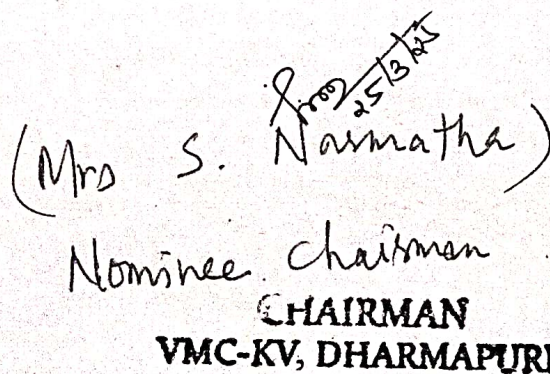 25/3/25
(Mrs S. Narmatha)
Nominee Chairman
CHAIRMAN
VMC-KV, DHARMAPURI